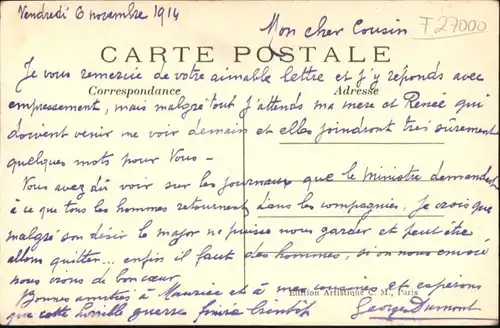 Vendredi 6 novembre 1914
Mon cher Cousin
F27000
CARTE POSTALE
Je vous remercie de votre aimable lettre et j'y réponds avec
Correspondance
Adresse
empressement, mais malgré tout j'attends ma mère et Renée qui
doivent venir me voir demain et elles joindront très sûrement
quelques mots pour Vous –
Vous avez dû voir sur les journaux que le ministre demandait
à ce que tous les hommes retournent dans les compagnies. Je crois que
malgré son désir le major ne puisse nous garder et peut être
allons quitter... enfin il faut des hommes, si on nous envoie
nous irons de bon cœur.
Edition Artistique C. M., Paris
Bonnes amitiés à Maurice et à mes cousines et espérons
que cette horrible guerre finira bientôt Georges Dumont